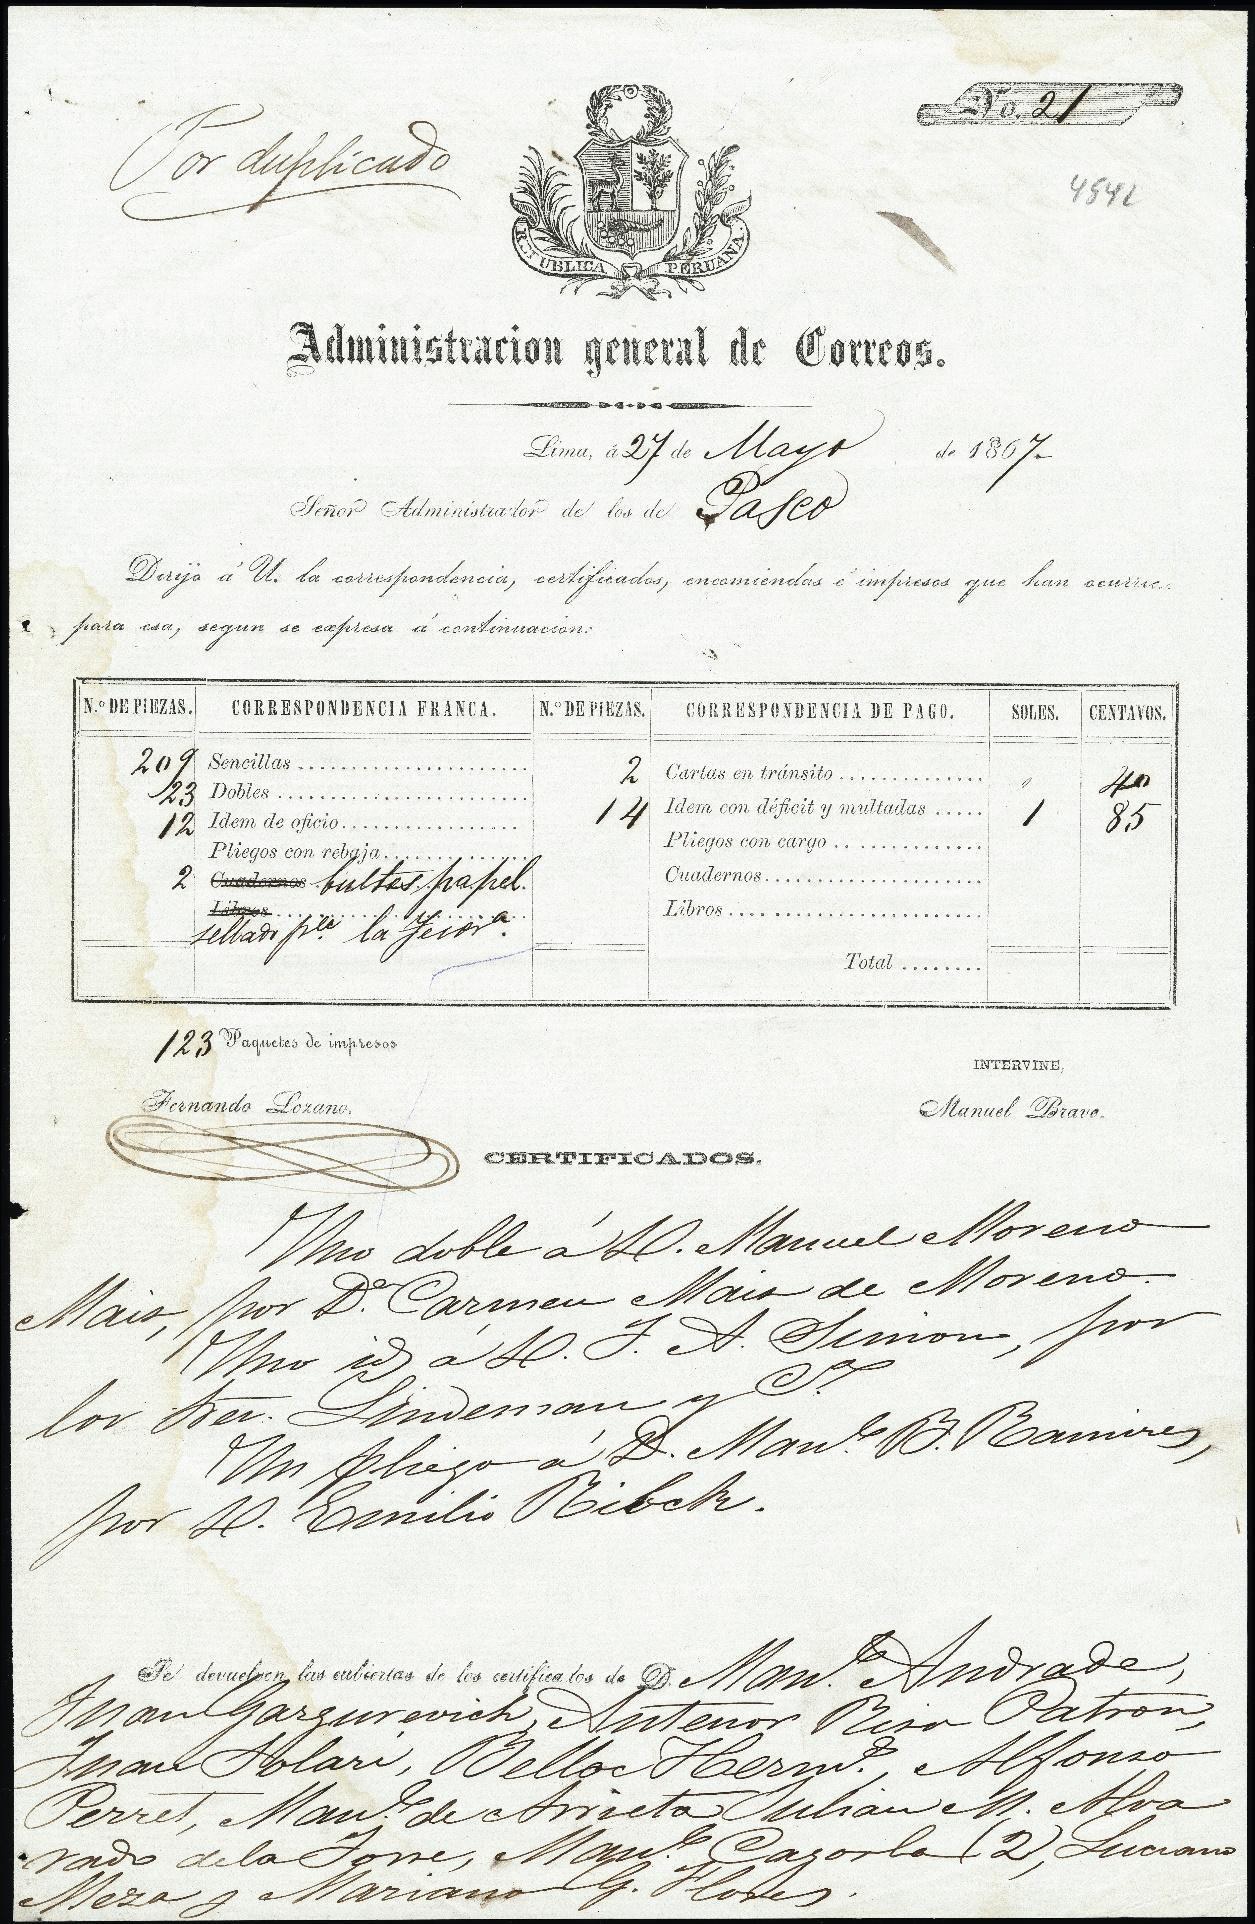 Por duplicado
No. 21
4542
REPUBLICA PERUANA.
Administracion general de Correos.
Lima, á 27 de Mayo de 1867.
Señor Administrador de los de Pasco
Dirijo á U. la correspondencia, certificados, encomiendas é impresos que han ocurri
para esa, segun se expresa á continuacion:
N.º DE PIEZAS. CORRESPONDENCIA FRANCA. N.º DE PIEZAS. CORRESPONDENCIA DE PAGO. SOLES. CENTAVOS.
209 Sencillas
23 Dobles
12 Idem de oficio
Pliegos con rebaja
2 Cuadernos bultos papel
Libros
sellado la
2 Cartas en tránsito " 40
14 Idem con déficit y multadas 1 85
Pliegos con cargo
Cuadernos
Libros
Total
123 Paquetes de impresos
INTERVINE,
Fernando Lozano.
Manuel Bravo.
CERTIFICADOS.
Uno doble á D. Manuel Moreno
Mais, por Dª Carmen Mais de Moreno.
Uno id á D. J. A. Simon, por
los Sres. Lindeman y Cª
Un pliego á D. Manl. B. Ramires,
por D. Emilio Ribck.
Se devuelven las cubiertas de los certificados de D. Manl. Andrade,
Juan Gazgurevich, Antenor Riso Patron,
Juan Solari, Bello Hermº, Alfonso
Perret, Manl. de Arrieta Julian M. Alva
rado de la Torre, Manl. Cazorla (2), Luciano
Meza y Mariano G. Flores.